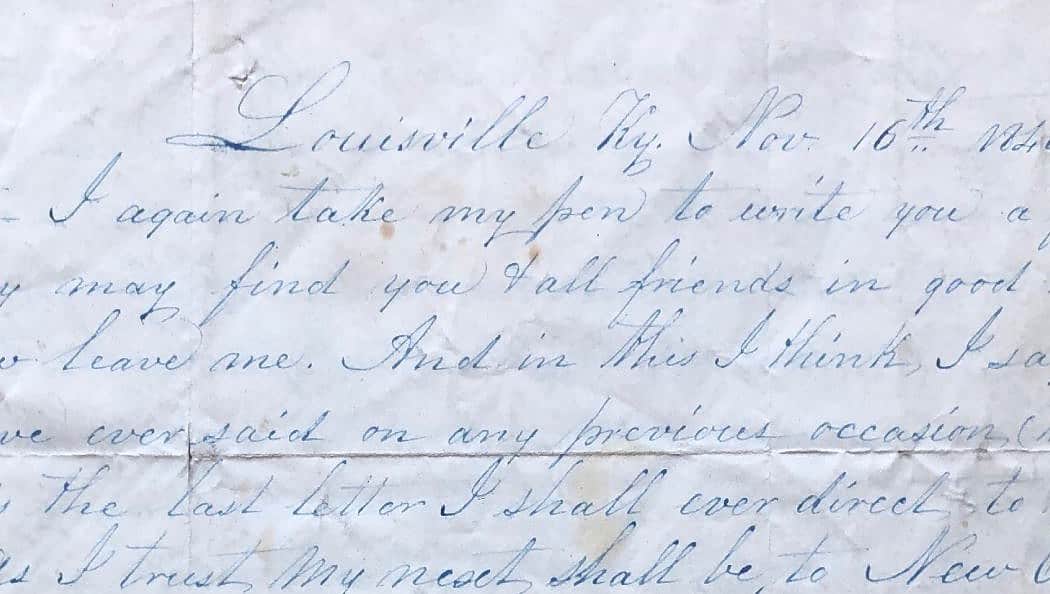 Louisville Ky. Nov. 16th 184
- I again take my pen to write you a
y may find you & all friends in good
leave me. And in this I think, I sa
ve ever said on any previous occasion (
s the last letter I shall ever direct to
as I trust my next shall be, to New O